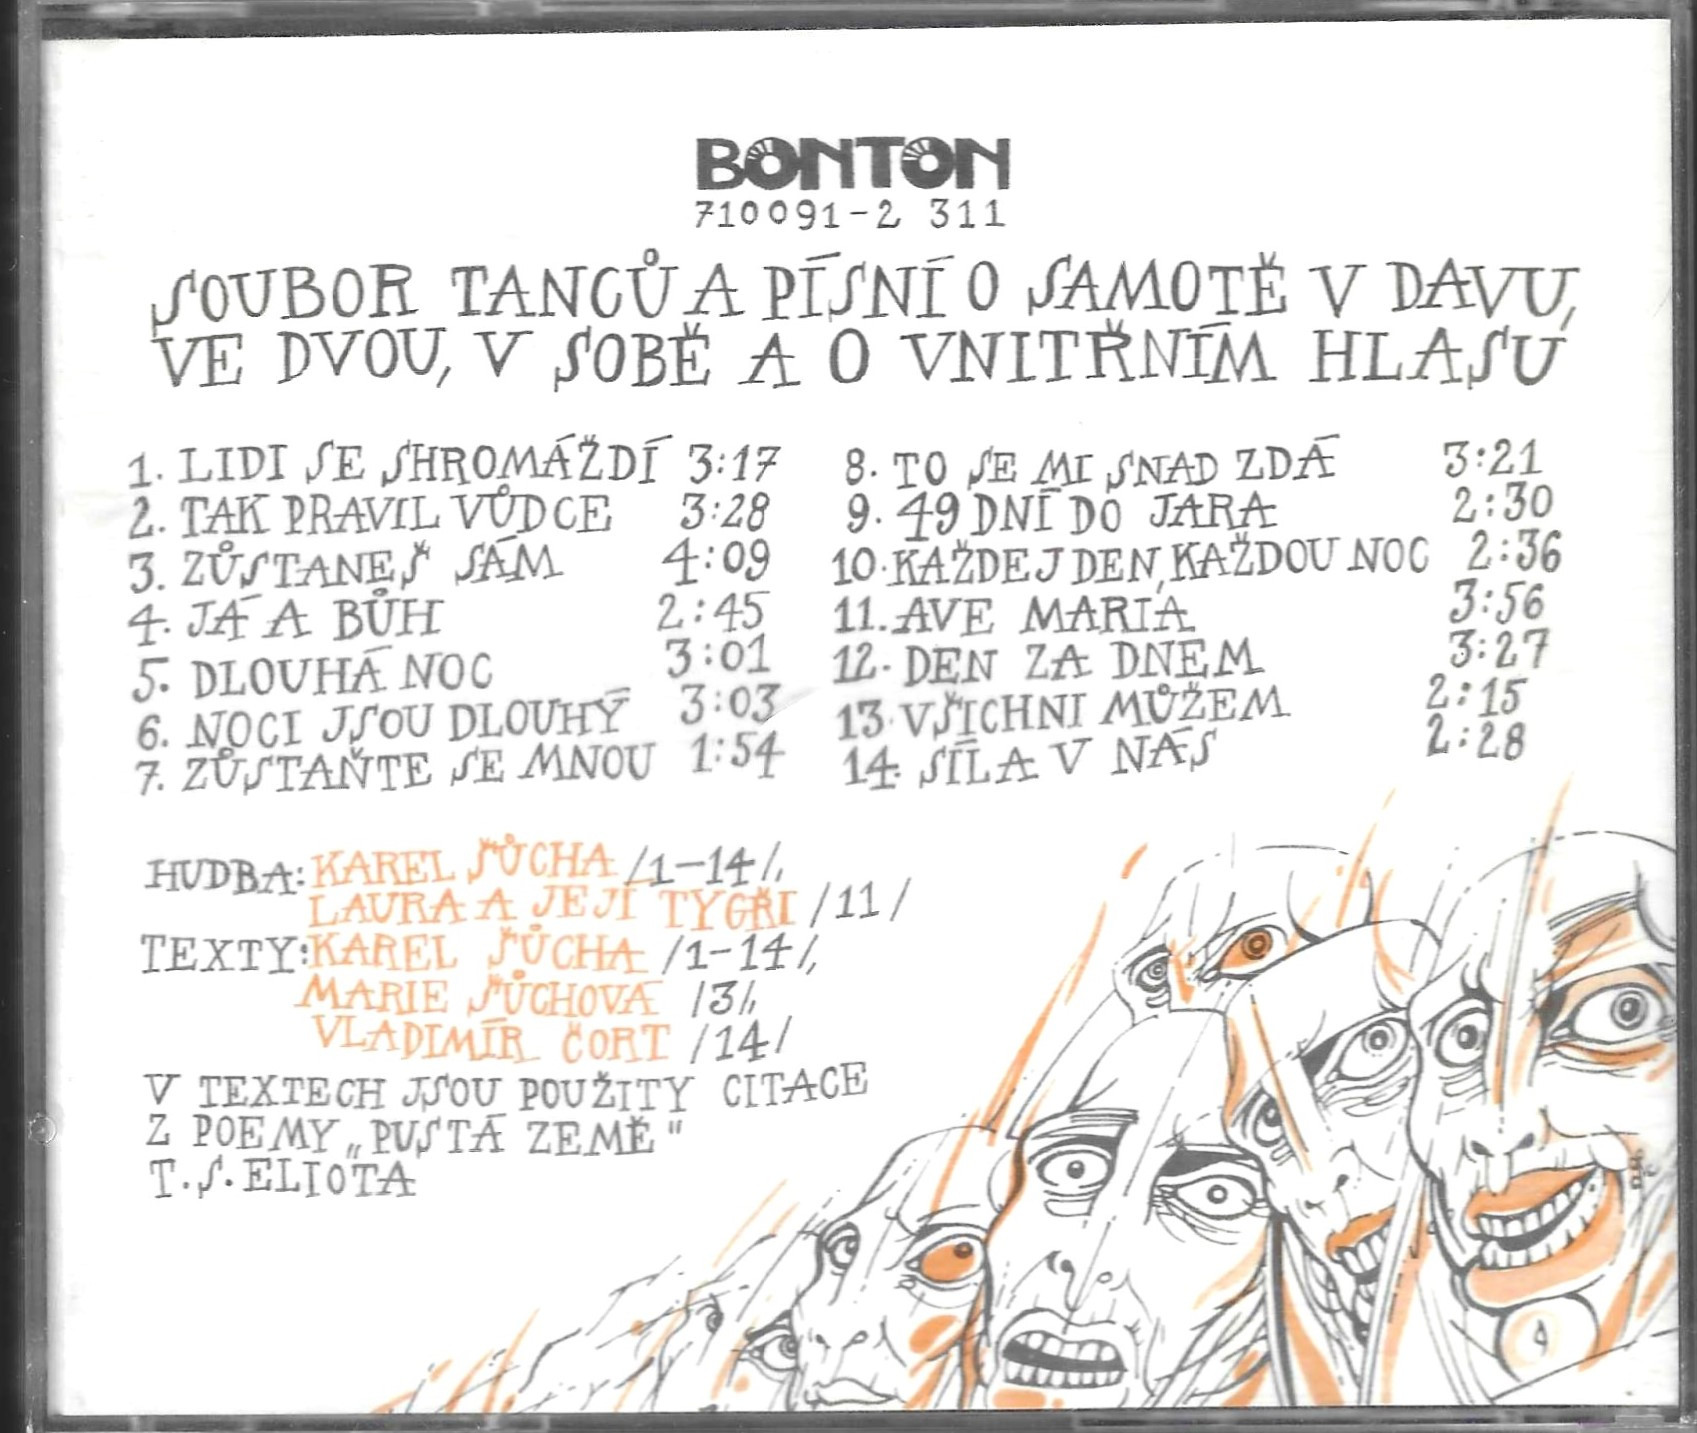 BONTON
710091-2 311
SOUBOR TANCŮ A PÍSNÍ O SAMOTĚ V DAVU,
VE DVOU, V SOBĚ A O VNITŘNÍM HLASU
1. LIDI SE SHROMÁŽDÍ 3:17
2. TAK PRAVIL VŮDCE 3:28
3. ZŮSTANEŠ SÁM 4:09
4. JÁ A BŮH 2:45
5. DLOUHÁ NOC 3:01
6. NOCI JSOU DLOUHÝ 3:03
7. ZŮSTAŇTE SE MNOU 1:54
8. TO SE MI SNAD ZDÁ 3:21
9. 49 DNÍ DO JARA 2:30
10. KAŽDEJ DEN, KAŽDOU NOC 2:36
11. AVE MARIA 3:56
12. DEN ZA DNEM 3:27
13. VŠICHNI MŮŽEM 2:15
14. SÍLA V NÁS 2:28
HUDBA: KAREL ŠŮCHA /1-14/,
LAURA A JEJÍ TYGŘI /11/
TEXTY: KAREL ŠŮCHA /1-14/,
MARIE ŠŮCHOVÁ /3/,
VLADIMÍR ČORT /14/
V TEXTECH JSOU POUŽITY CITACE
Z POEMY „PUSTÁ ZEMĚ"
T. S. ELIOTA